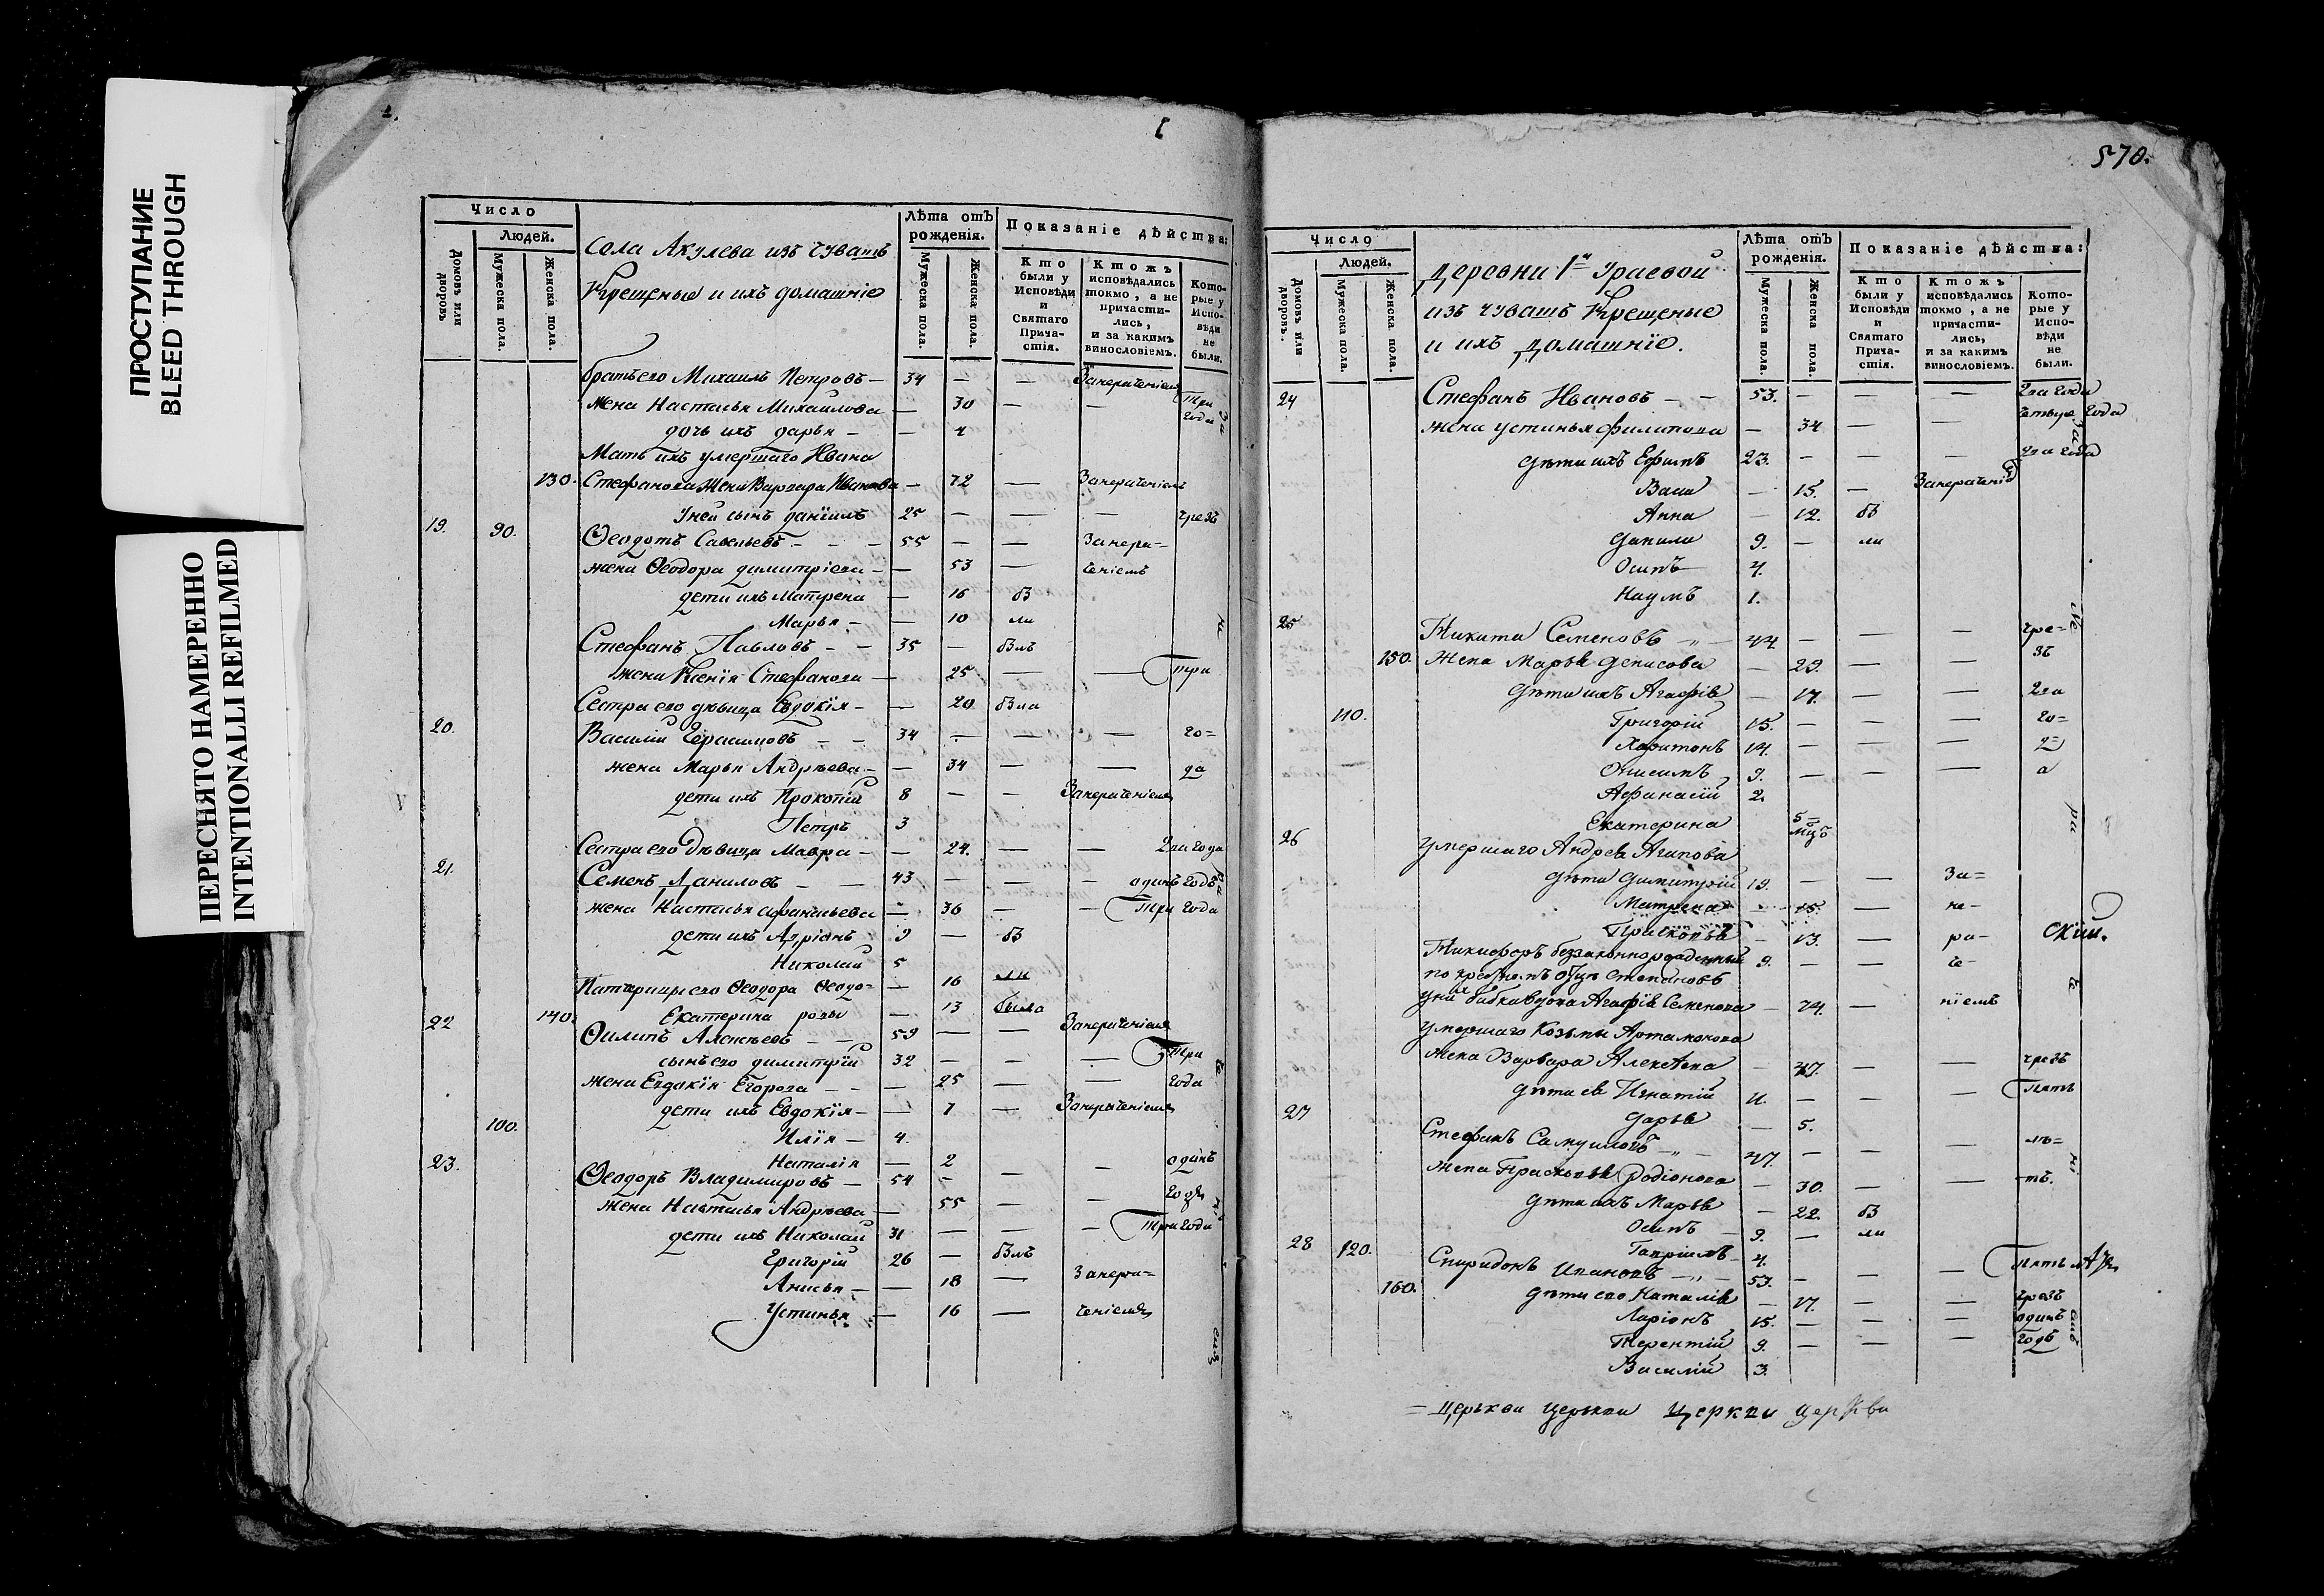 ПРОСТУПАНИЕ
BLEED THROUGH
ПЕРЕСНЯТО НАМЕРЕННО
INTENTIONALLI REFILMED
Число
Людей.
Домовъ или дворовъ
Мужеска пола.
Женска пола.
Села Акулева изъ чувашъ
Крещеные и ихъ домашніе
Лѣта отъ рожденія.
Мужеска пола.
Женска пола.
Показаніе дѣйства:
Кто были у Исповѣди и Святаго Прича-стія.
Ктожъ исповѣдались токмо, а не причасти-лись, и за какимъ винословіемъ.
Кото-рые у Испо-вѣди не были.
братъ его Михаилъ Петровъ — 34 — —
жена Настасья Михайлова — 30 — — три года
дочь ихъ Дарья — — 4
Мать ихъ умершаго Ивана
130. Стефанова жена Варвара Иванова — 72 —
У ней сынъ Даніилъ 25 — — — чрезъ
19. 90. Ѳеодотъ Савельевъ — 55 — —
жена Ѳеодора Димитріева — 53 —
дети ихъ Матрена — 16 бы
Марья — — 10 ли
Стефанъ Павловъ — 35 — былъ
жена Ксенія Стефанова — 25 — — три
Сестра его девица Евдокія — — 20 была
20. Василий Герасимовъ — 34 — — — го=
жена Марья Андреева — — 34 — — да
дети ихъ Прокопій 8 — —
Петръ 3
Сестра его девица Мавра — — 24. — — два года
21. Семенъ Даниловъ — 43 — — — одинъ годъ
жена Настасья Афанасьева — 36 — — три года
дети ихъ Адріанъ 9 — бы
Николай 5 ли
16
140. Екатерина — 13 была
22 Филипъ Алексеевъ — 59 — —
сынъ его Димитрій 32 — — — три
жена Евдокія Егорова — — 25 — — года
дети ихъ Евдокія — — 7 —
100. Илія — 4.
Наталія — 2
23. Ѳеодоръ Владимировъ — 54 — — — одинъ
жена Настасья Андреева — 55 — — годъ
дети ихъ Николай 31 — — — три года
Григорій 26 — былъ
Анисья — — 18 —
Устинья — 16 —
570.
Число
Людей.
Домовъ или дворовъ.
Мужеска пола.
Женска пола.
изъ чувашъ Крещеные
и ихъ Домашніе.
Лѣта отъ рожденія.
Мужеска пола.
Женска пола.
Показаніе дѣйства:
Кто были у Исповѣди и Святаго Прича-стія.
Ктожъ исповѣдались токмо, а не причасти-лись, и за какимъ винословіемъ.
Кото-рые у Испо-вѣди не были.
24 Стефанъ Ивановъ — — 53. — — — два года
жена Устинья Филипова — 34 — — года
дѣти ихъ Ефимъ 23. — — — два года
Васа — 15. —
Анна — 12. бы
Данило 9. — ли
Осипъ 4.
Наумъ 1.
25 Никита Семеновъ — 44 — — — чре=
150. Жена Марья Денисова — 29. — — зъ
дѣти ихъ Агафія — 17. — — два
110. Григорій 15. — — — го=
Харитонъ 14. — — — д=
Онисимъ 9. — — — а
Афанасій 2.
Екатерина 5 мцъ
26 умершаго Андрея Агапова
дѣти Димитрій 19. — — за=
Матрена — 15. — не-
Прасковья — 13. — ра-
Никифоръ беззаконнорожденный 9. — — че-
у ней бабка вдова Агафія Семенова — 74. — ніемъ
умершаго Козьмы Артамонова
жена Варвара Алексѣева — 47. — — чрезъ
дѣти ея Игнатій 11. — — — пять
Дарья — 5.
27 Стефанъ Самуиловъ — 47. — — — лѣ=
жена Прасковья Родіонова — 30. — — тъ.
дѣти ихъ Марья — 22. бы
Осипъ 9. — ли
Гавріилъ 4.
28 120. Спиридонъ Ивановъ — 53. — — — пять лѣтъ
160. дѣти его Наталія — 17. — — чрезъ
Ларіонъ 15. — — — одинъ
Терентій 9. — — — годъ
Василій 3.
= церькви церькви Церкви церкви